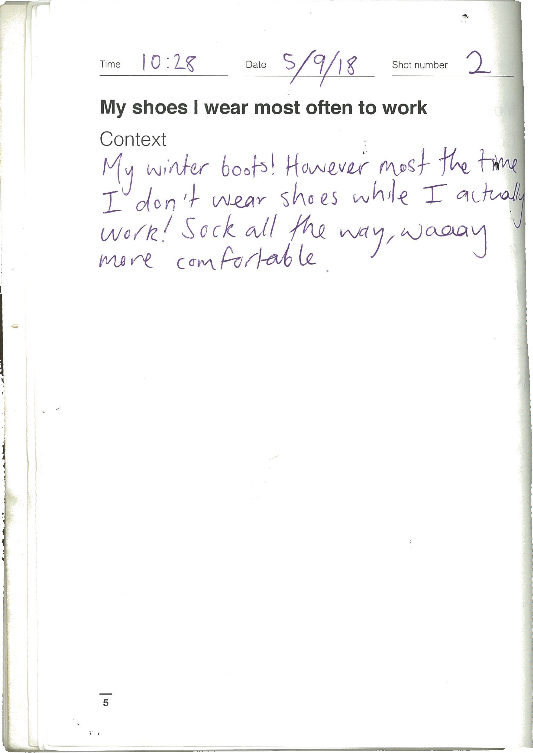 Time 10:28 Date 5/9/18 Shot number 2
My shoes I wear most often to work
Context
My winter boots! However most the time
I don't wear shoes while I actually
work! Sock all the way, waaay
more comfortable
5